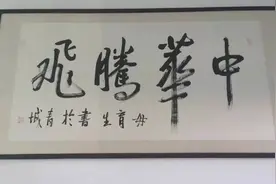 中華騰飛
毋育生書於青城